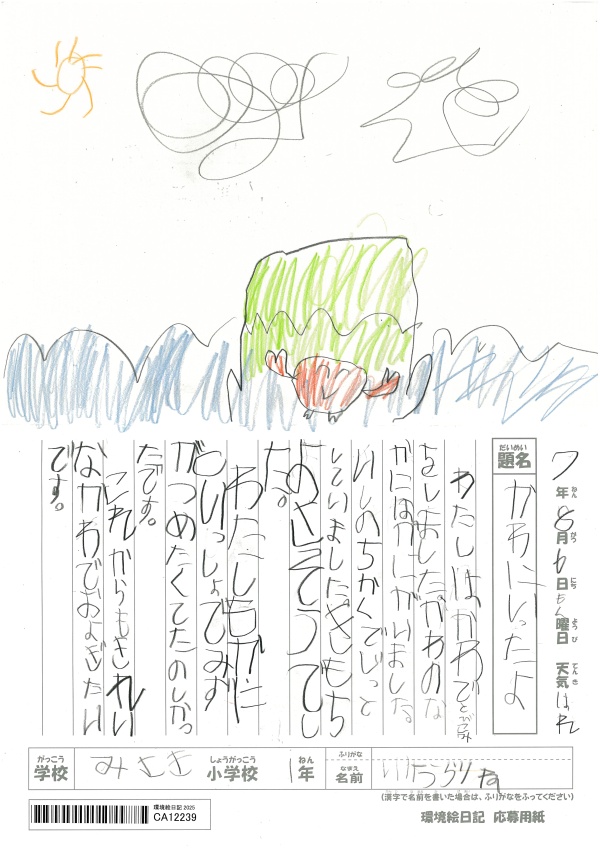 7年ねん8月がつ6日にち曜日ようび 天気てんきはれ
題名だいめい かわにいったよ
わたしはかわでとびこみ
をしましたかわのな
かにはかにがいました
いしのちかくでじっと
していましたきもち
た。
わたしもかに
といっしょでみず
がつめたくてたのしかっ
たです。
これからもきれい
なかわでおよぎたい
です。
学校がっこう みさき 小学校しょうがっこう 1年ねん ふりがな 名前なまえ
(漢字で名前を書いた場合は、ふりがなをふってください)
環境絵日記 2025
CA12239
環境絵日記 応募用紙